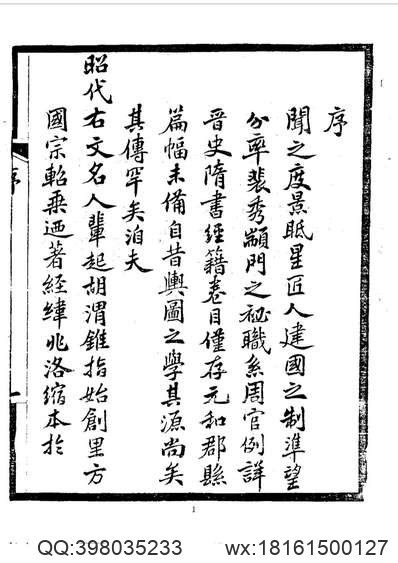 序
聞之度景眡星匠人建國之制準望
分率裴秀顓門之祕職系周官例詳
晉史隋書經籍卷目僅存元和郡縣
篇幅未備自昔輿圖之學其源尚矣
其傳罕矣洎夫
昭代右文名人輩起胡渭錐指始創里方
國宗軺乘迺著經緯兆洛縮本於
1
QQ:398035233
wx:18161500127